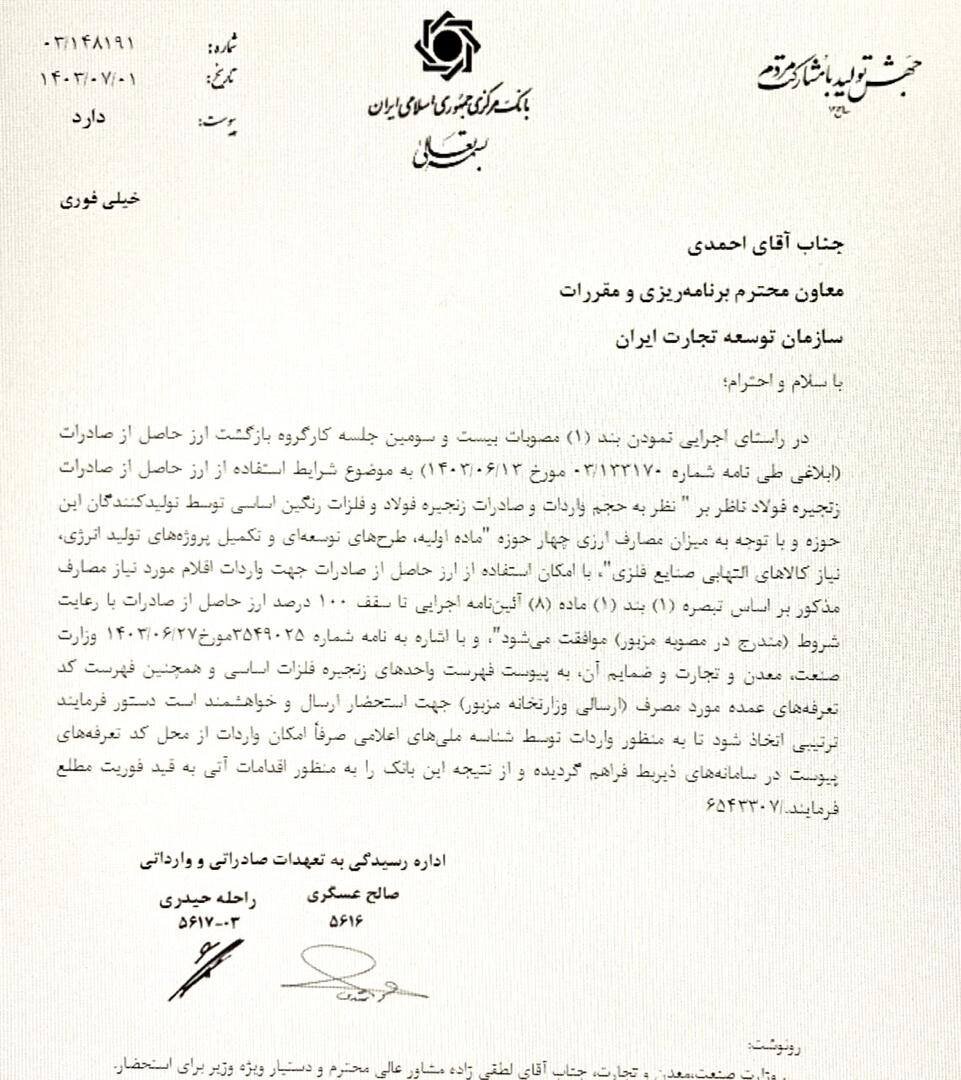 جهش تولید با مشارکت مردم
بانک مرکزی جمهوری اسلامی ایران
بسمه تعالی
شماره: ۰۳/۱۴۸۱۹۱
تاریخ: ۱۴۰۳/۰۷/۰۱
پیوست: دارد
خیلی فوری
جناب آقای احمدی
معاون محترم برنامه‌ریزی و مقررات
سازمان توسعه تجارت ایران
با سلام و احترام؛
در راستای اجرایی نمودن بند (۱) مصوبات بیست و سومین جلسه کارگروه بازگشت ارز حاصل از صادرات
(ابلاغی طی نامه شماره ۰۳/۱۳۳۱۷۰ مورخ ۱۴۰۳/۰۶/۱۳) به موضوع شرایط استفاده از ارز حاصل از صادرات
زنجیره فولاد ناظر بر " نظر به حجم واردات و صادرات زنجیره فولاد و فلزات رنگین اساسی توسط تولیدکنندگان این
حوزه و با توجه به میزان مصارف ارزی چهار حوزه "ماده اولیه، طرح‌های توسعه‌ای و تکمیل پروژه‌های تولید انرژی،
نیاز کالاهای التهابی صنایع فلزی"، با امکان استفاده از ارز حاصل از صادرات جهت واردات اقلام مورد نیاز مصارف
مذکور بر اساس تبصره (۱) بند (۱) ماده (۸) آئین‌نامه اجرایی تا سقف ۱۰۰ درصد ارز حاصل از صادرات با رعایت
شروط (مندرج در مصوبه مزبور) موافقت می‌شود"، و با اشاره به نامه شماره ۳۵۴۹۰۲۵مورخ۱۴۰۳/۰۶/۲۷ وزارت
صنعت، معدن و تجارت و ضمایم آن، به پیوست فهرست واحدهای زنجیره فلزات اساسی و همچنین فهرست کد
تعرفه‌های عمده مورد مصرف (ارسالی وزارتخانه مزبور) جهت استحضار ارسال و خواهشمند است دستور فرمایند
ترتیبی اتخاذ شود تا به منظور واردات توسط شناسه ملی‌های اعلامی صرفاً امکان واردات از محل کد تعرفه‌های
پیوست در سامانه‌های ذیربط فراهم گردیده و از نتیجه این بانک را به منظور اقدامات آتی به قید فوریت مطلع
فرمایند./۶۵۴۳۳۰۷
اداره رسیدگی به تعهدات صادراتی و وارداتی
صالح عسگری
۵۶۱۶
راحله حیدری
۵۶۱۷-۰۳
رونوشت:
وزارت صنعت،معدن و تجارت، جناب آقای لطفی زاده مشاور عالی محترم و دستیار ویژه وزیر برای استحضار.